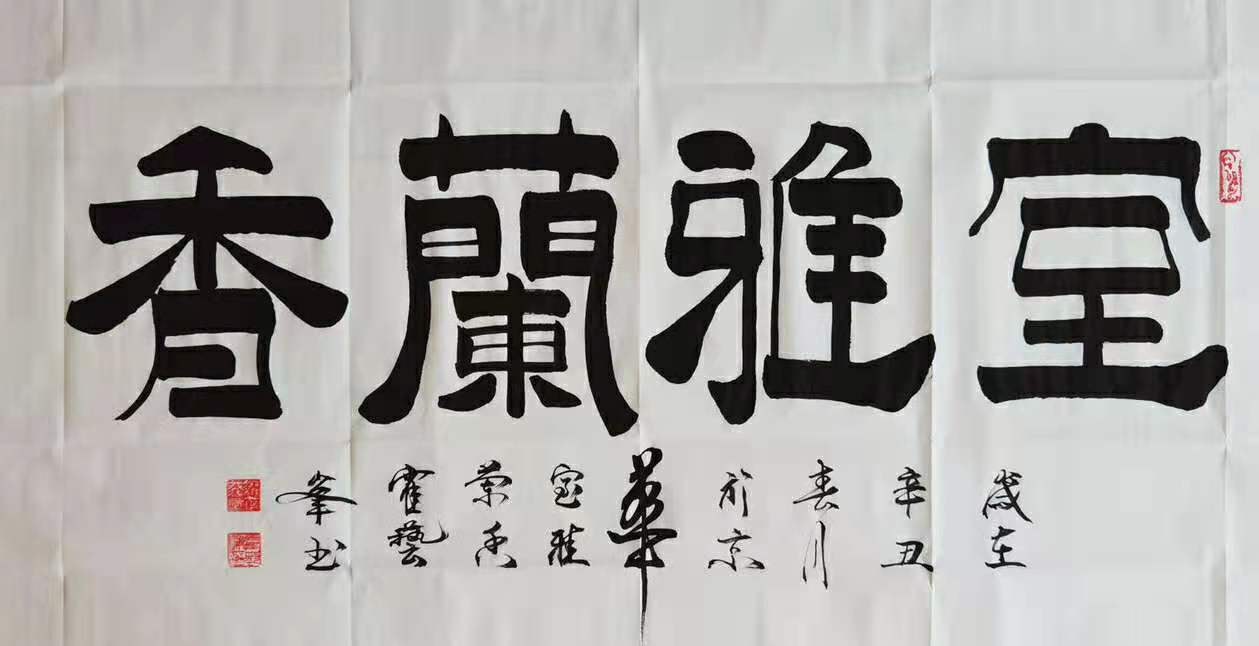 室雅蘭香
歲在
辛丑
春月
於京
華
室雅
蘭香
霍藝
峯书